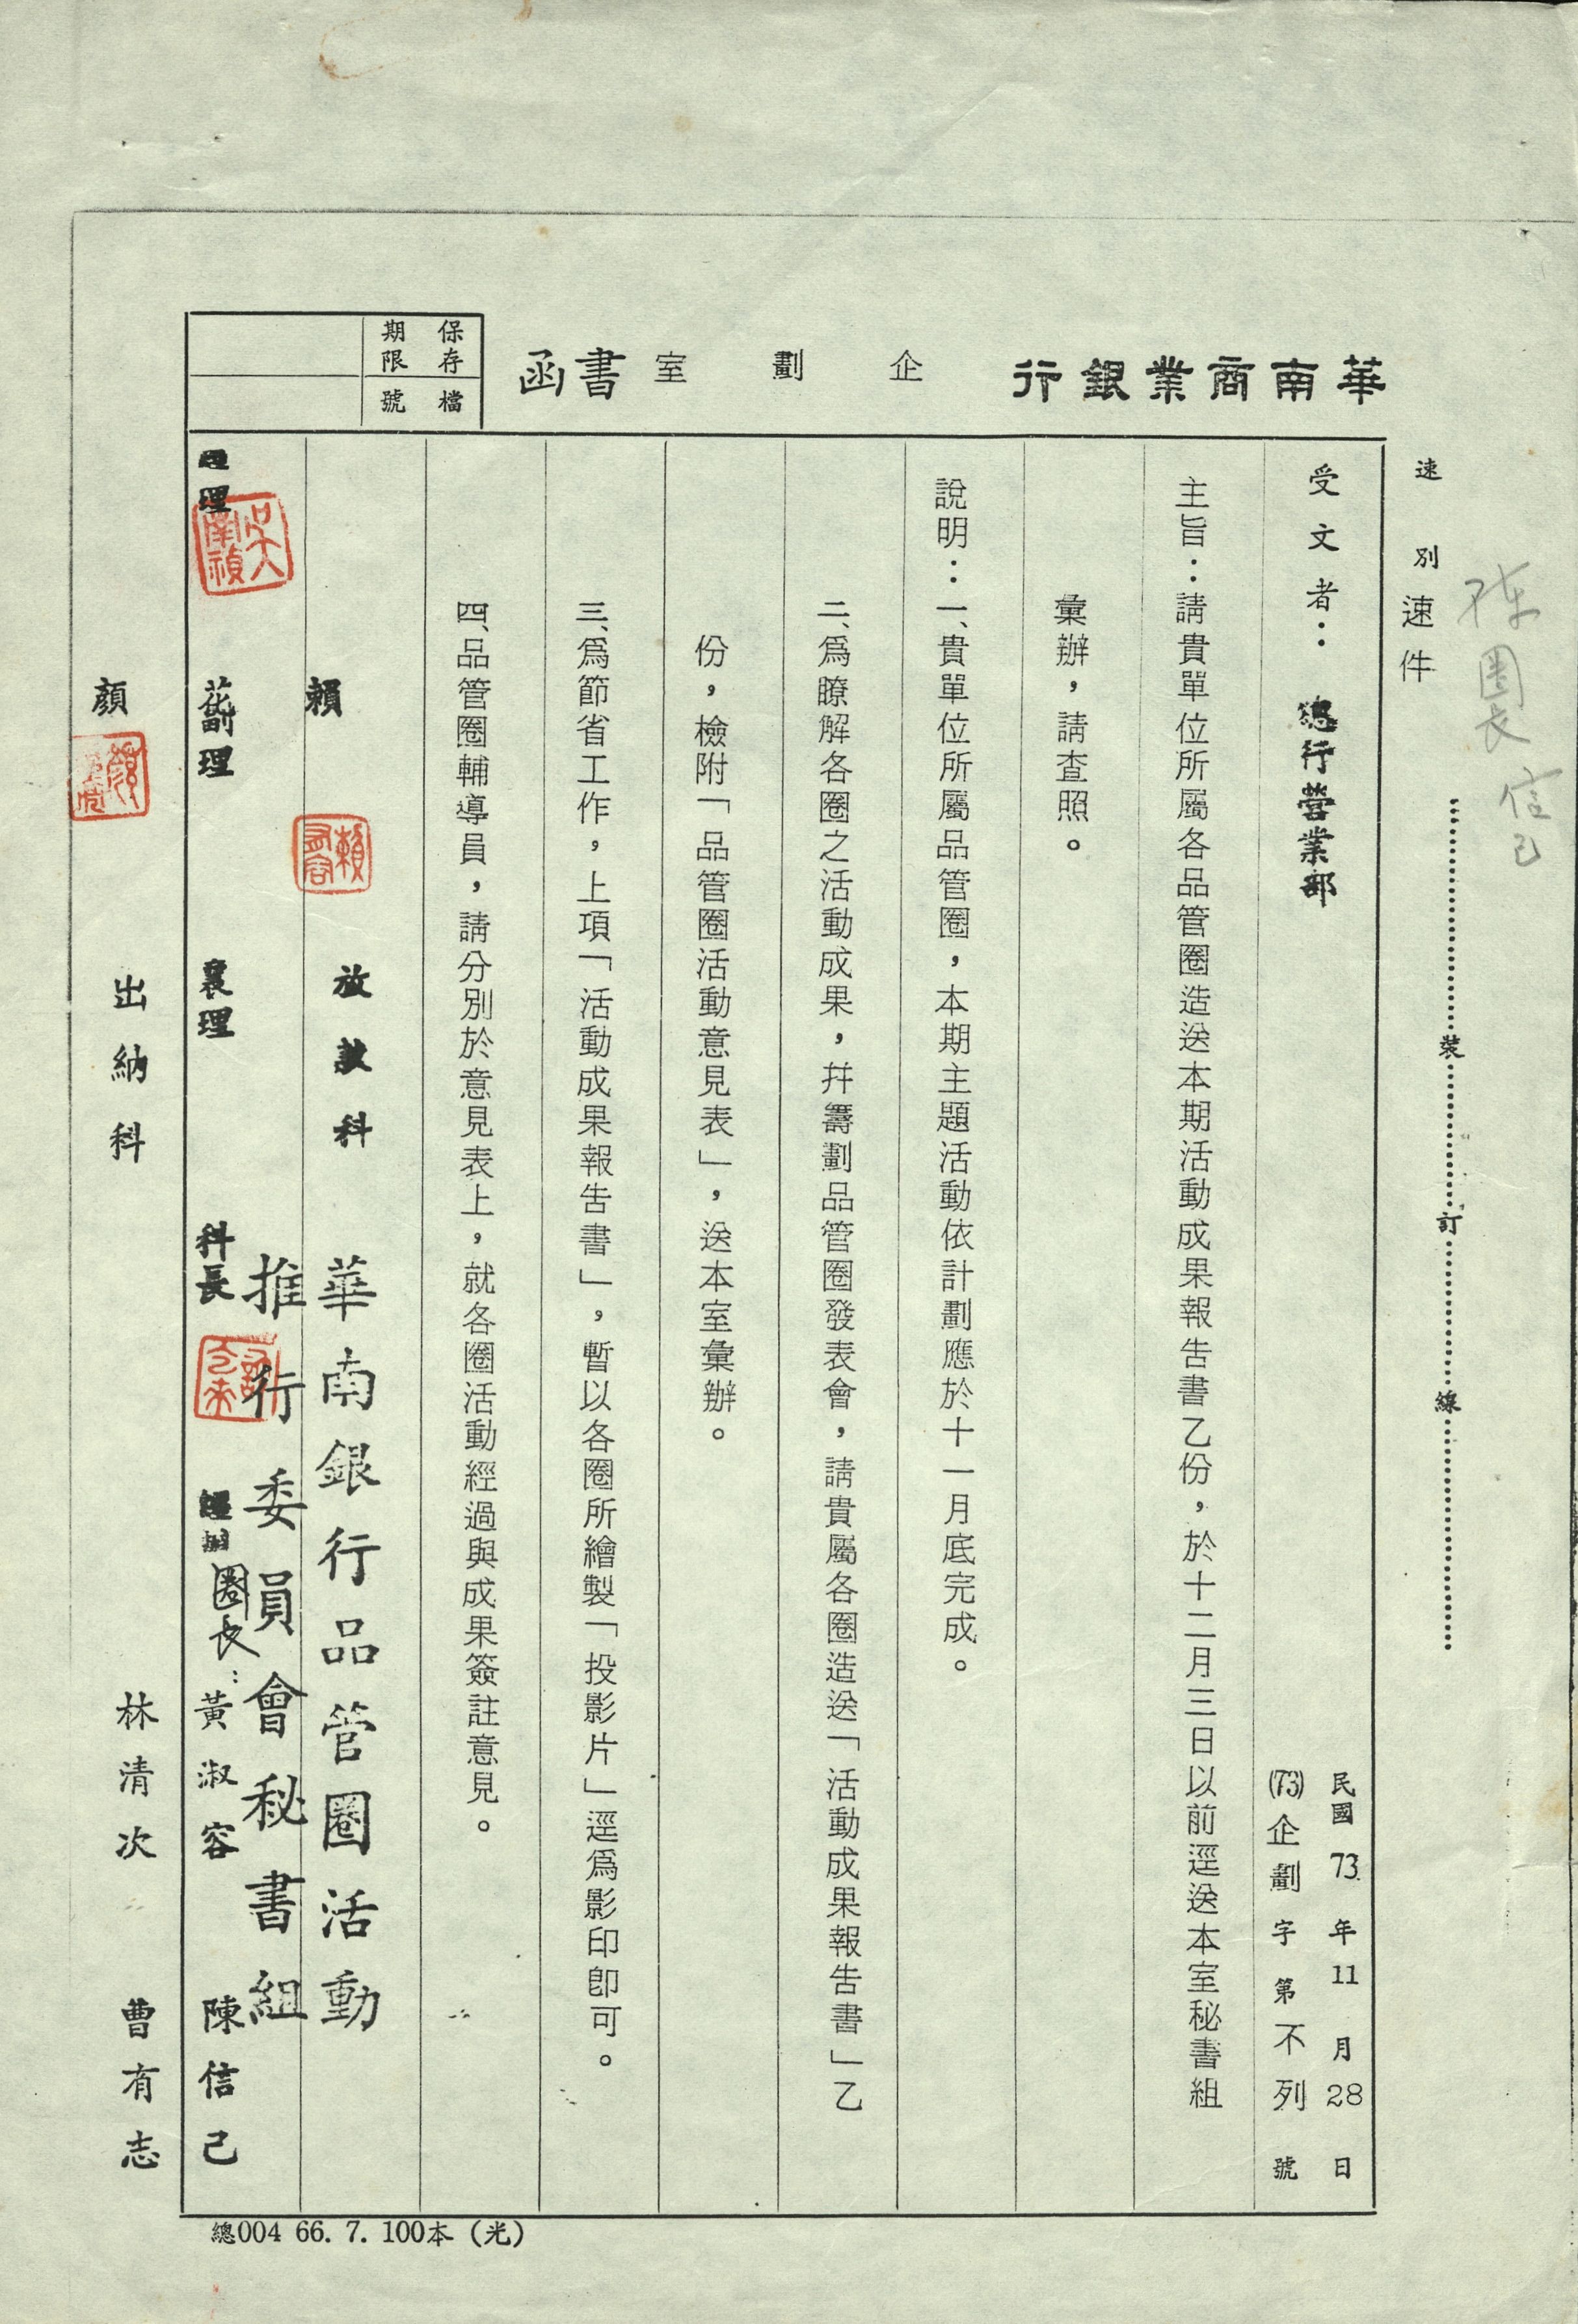 陳圈長信己
裝訂線
速別 速件
華南商業銀行 企劃室 書函
保存期限
檔號
受文者：總行營業部
民國73年11月28日
(73)企劃字第不列號
主旨：請貴單位所屬各品管圈造送本期活動成果報告書乙份，於十二月三日以前逕送本室秘書組
彙辦，請查照。
說明：一、貴單位所屬品管圈，本期主題活動依計劃應於十一月底完成。
二、爲瞭解各圈之活動成果，幷籌劃品管圈發表會，請貴屬各圈造送「活動成果報告書」乙
份，檢附「品管圈活動意見表」，送本室彙辦。
三、爲節省工作，上項「活動成果報告書」，暫以各圈所繪製「投影片」逕爲影印卽可。
四、品管圈輔導員，請分別於意見表上，就各圈活動經過與成果簽註意見。
華南銀行品管圈活動
推行委員會秘書組
賴 放款科
副理 襄理 科長 圈長：黃淑容 陳信己
顏 出納科 林清次 曹有志
總004 66. 7. 100本（光）